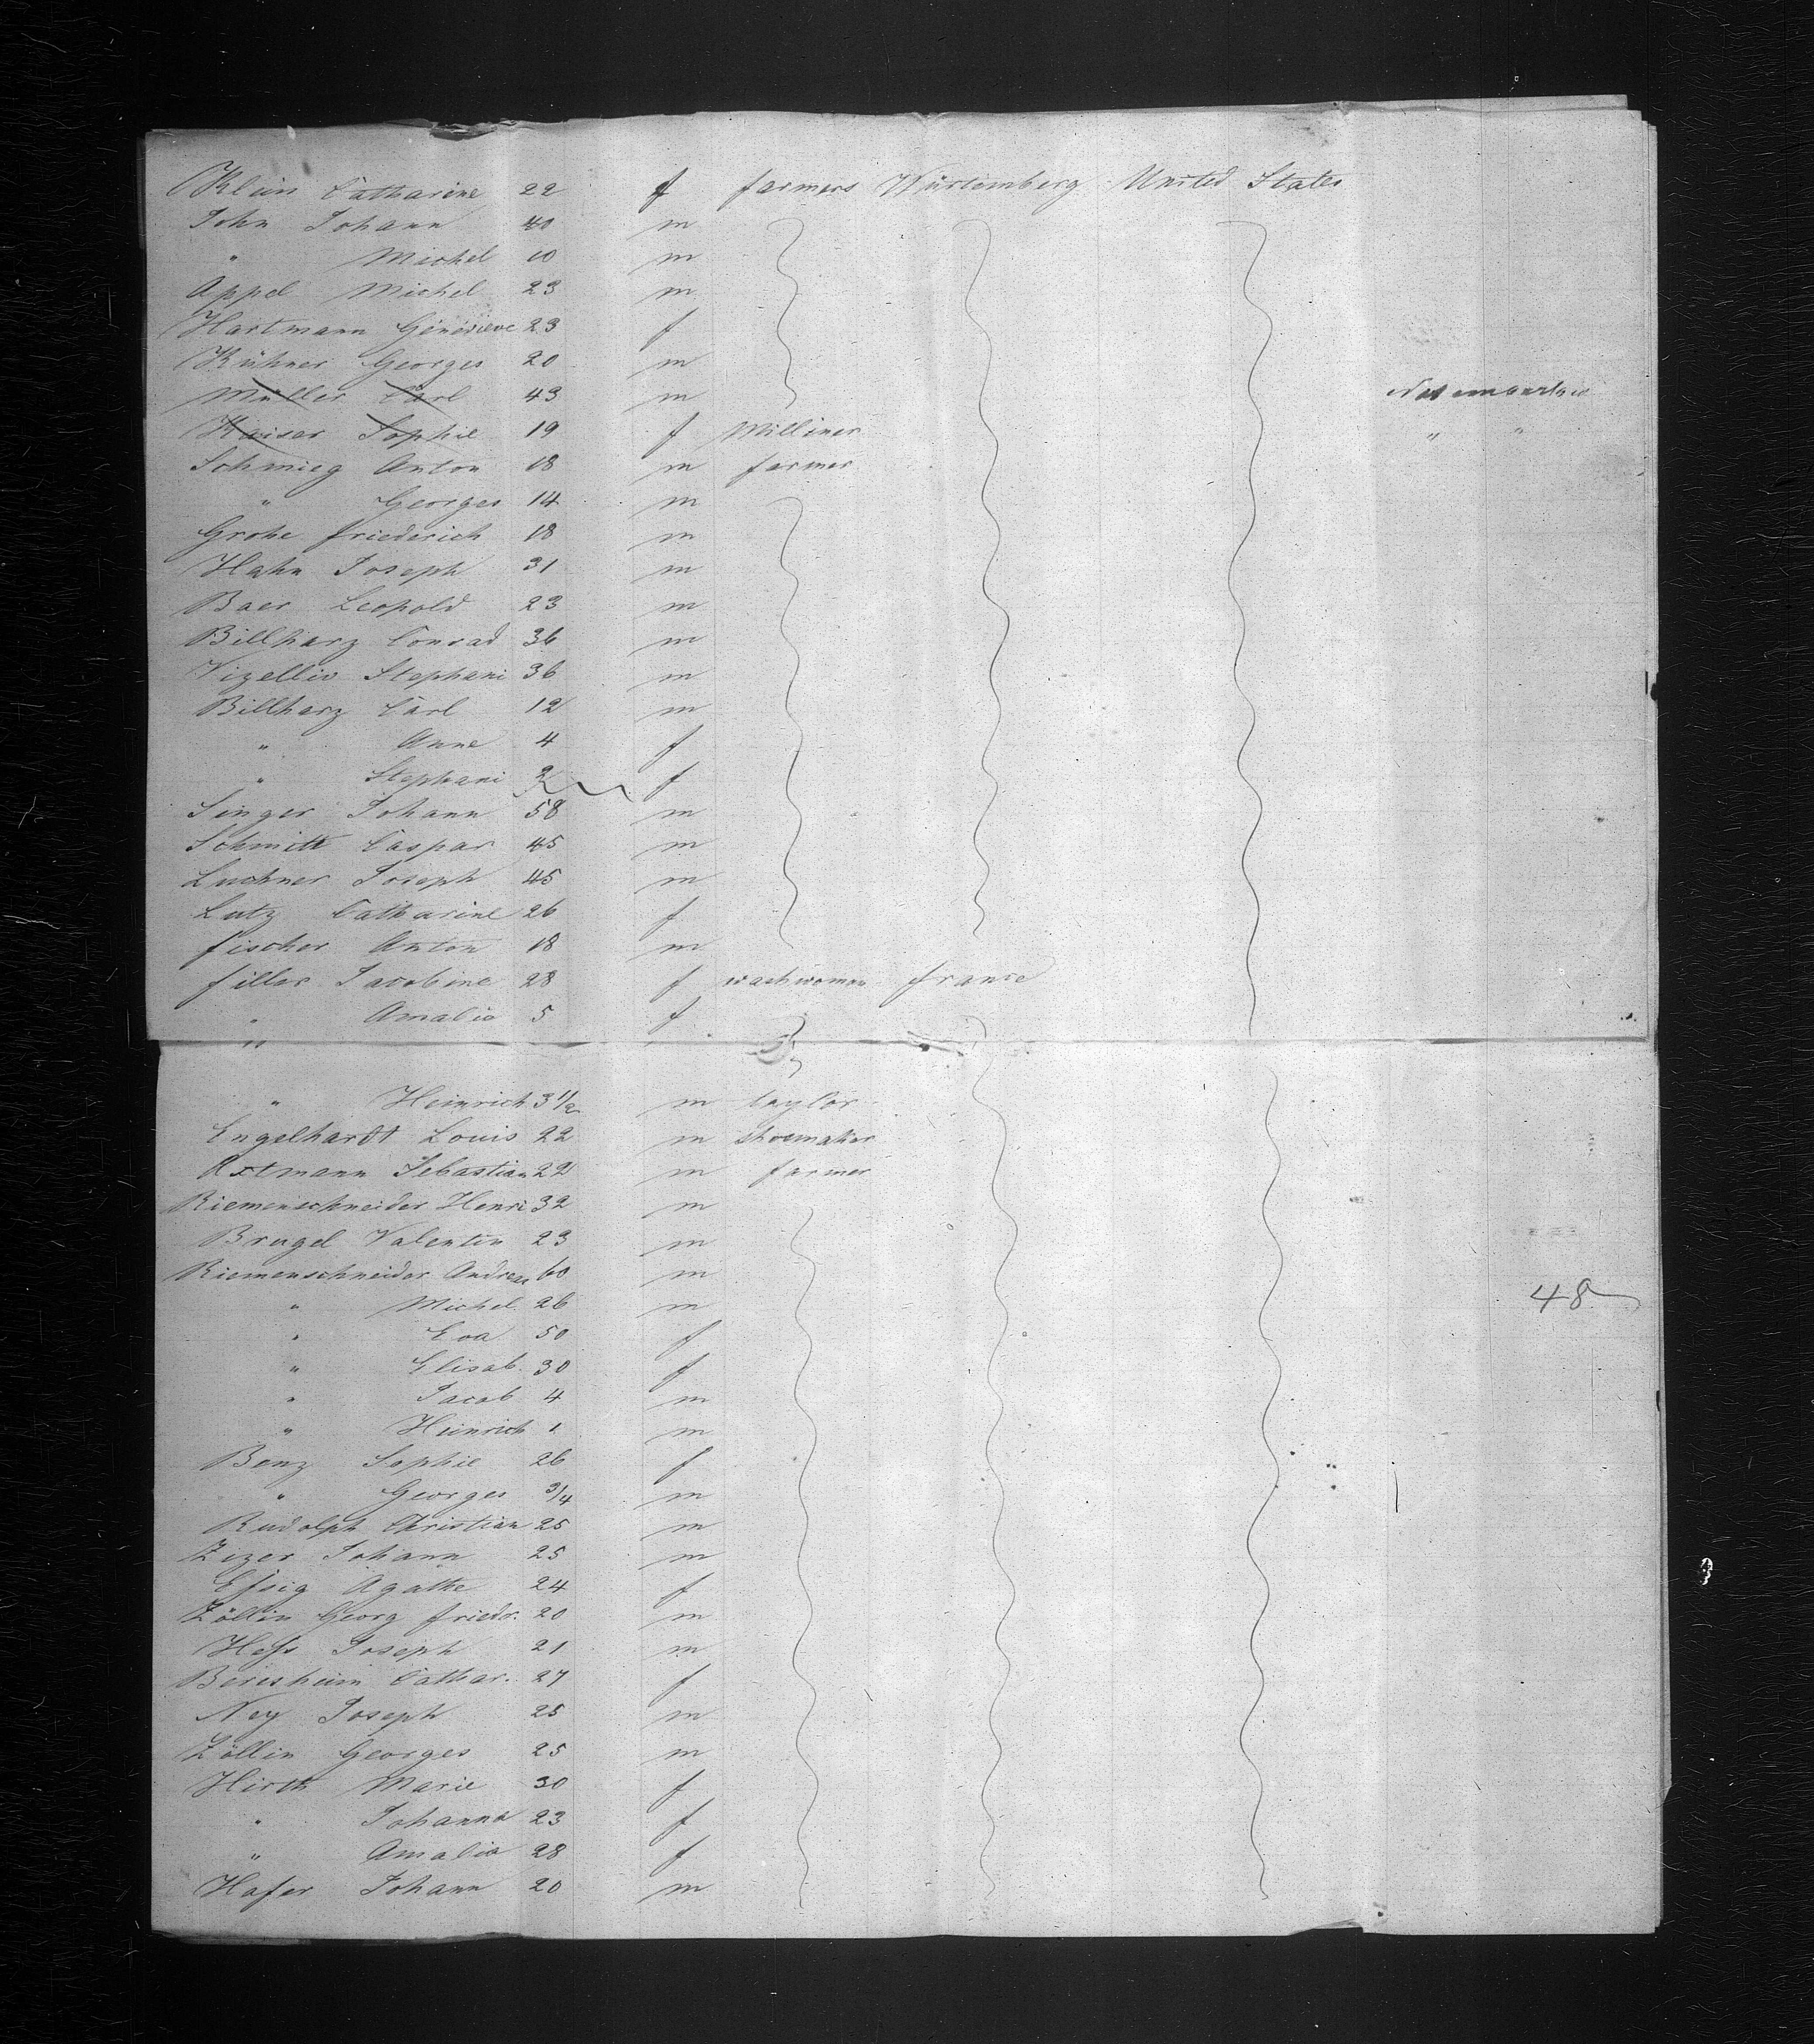 Klein Catharine 22 f farmers Würtemberg United States
John Johann 40 m
" Michel 10 m
Appel Michel 23 m
Hartmann Génévieve 23 f
Kühner Georges 20 m
Müller Carl 43 m Not embarked
Kaiser Sophie 19 f Milliner " "
Schmieg Anton 18 m farmer
" Georges 14 m
Grohe friederich 18 m
Hahn Joseph 31 m
Baer Leopold 23 m
Billharz Conrad 36 m
Vizellio Stephani 36 m
Billharz Carl 12 m
" Anne 4 f
" Stephani 2 f
Singer Johann 58 m
Schmitt Caspar 45 m
Luchner Joseph 45 m
Lutz Catharine 26 f
fischer Anton 18 m
filler Jacobine 28 f washwoman france
" Amalia 5 f
"
" Heinrich 3 1/2 m taylor
Engelhardt Louis 22 m shoemaker
Sebastian 22 m farmer
Riemenschneider Henri 32 m
Brugel Valentin 23 m
Riemenschneider Andreas 60 m
" Michel 26 m 48
" Eva 50 f
" Elisab. 30 f
" Jacob 4 m
" Heinrich 1 m
Benz Sophie 26 f
" Georges 3/4 m
Rudolph Christian 25 m
Zizer Johann 25 m
Eſsig Agathe 24 f
Zöllin Georg friedr. 20 m
Heſs Joseph 21 m
Beirsheim Cathar. 27 f
Ney Joseph 25 m
Zöllin Georges 25 m
Hirth Marie 30 f
" Johanna 23 f
" Amalia 28 f
Hafer Johann 20 m